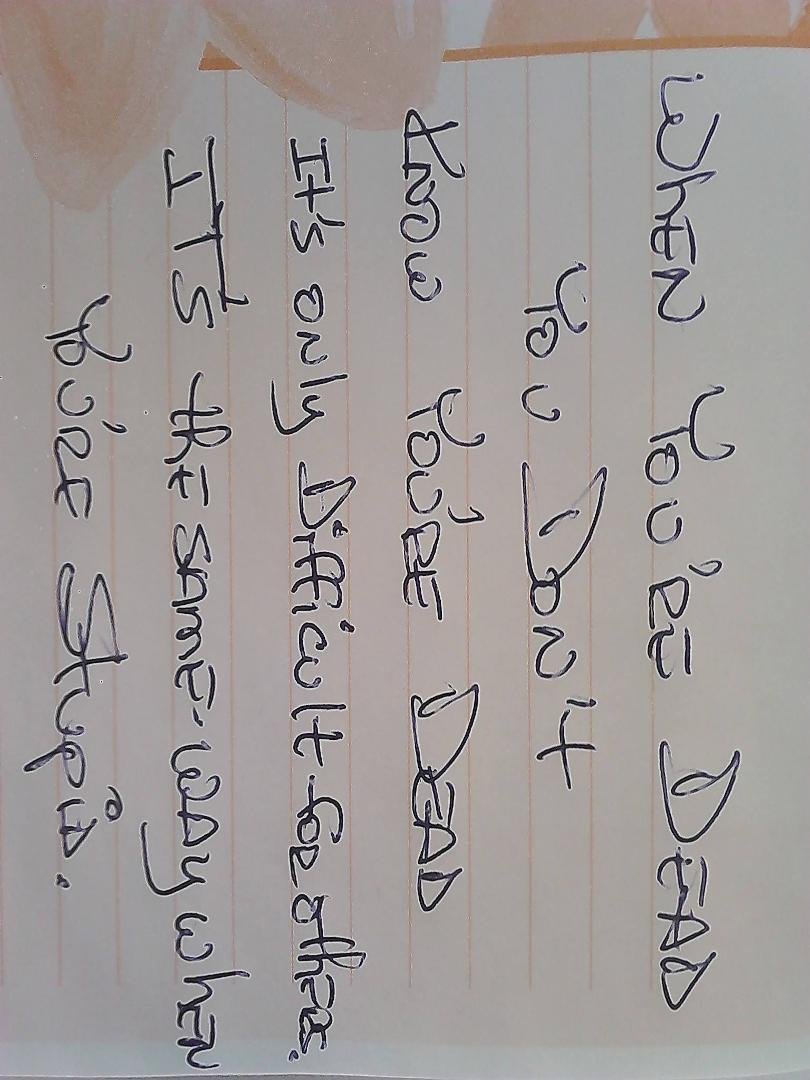 WhEN YOU'RE DEAD
YOU DON't
KNOW YOU'RE DEAD
It's only Difficult for others.
IT'S thE SAME WAY WhEN
YOU'RE StupiD.